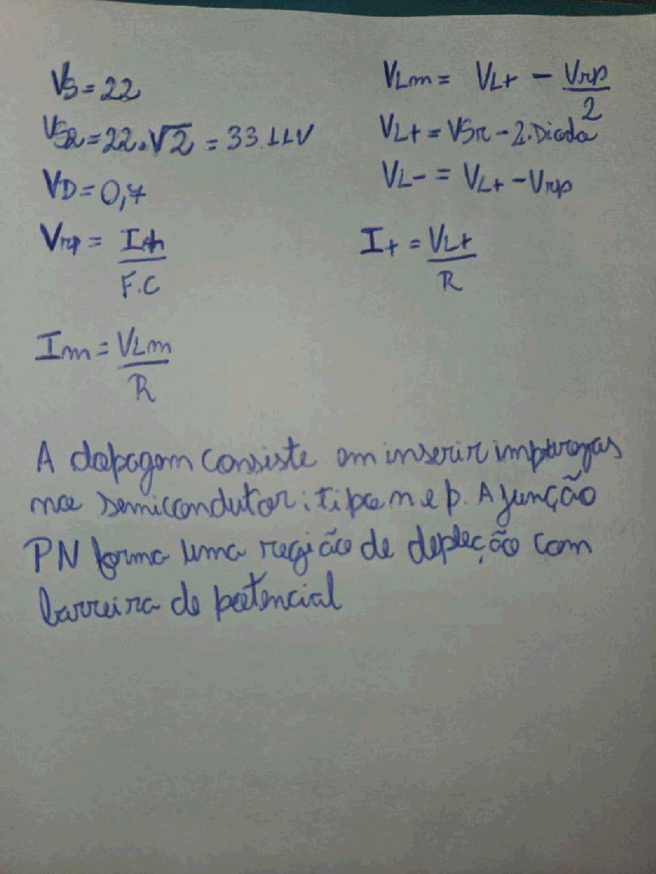 VS = 22
VS2 = 22.√2 = 33.11V
VD = 0,7
Vrp = I+/F.C
Im = VLm/R
VLm = VL+ - Vrp/2
VL+ = VSR - 2.Diodo
VL- = VL+ - Vrp
I+ = VL+/R
A dopagem consiste em inserir impurezas
nos semicondutor: tipo n e p. A junção
PN forma uma região de depleção com
barreira de potencial